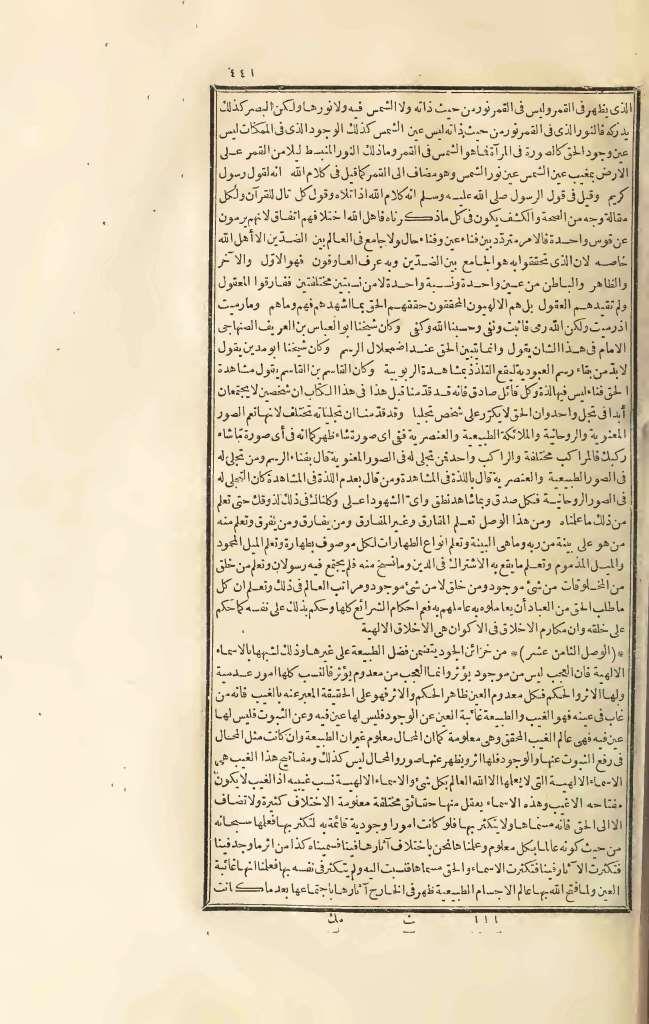 ٤٤١
الذى يظهر فى القمر وليس فى القمر نور من حيث ذاته ولا الشمس فيه ولا نورها ولكن البصر كذلك
يدركه فالنور الذى فى القمر نور من حيث ذاته ليس عين الشمس كذلك الوجود الذى فى الممكنات ليس
عين وجود الحق كالصورة فى المرآة فما هو الشمس فى القمر وما ذلك النور المنبسط ليلا من القمر على
الارض بمغيب عين الشمس عين نور الشمس وهو مضاف الى القمر كما قيل فى كلام الله انه لقول رسول
كريم وقيل فى قول الرسول صلى الله عليه وسلم انه كلام الله اذا تلاه وقول كل تال للقرآن ولكل
مقالة وجه من الصحة والكشف يكون فى كل ما ذكرناه فاهل الله اختلافهم اتفاق لانهم يرمون
عن قوس واحدة فالامر متردد بين فناء عين وفناء حال ولا جامع فى العالم بين الضدين الا أهل الله
خاصه لان الذى تحققوا به هو الجامع بين الضدين وبه عرف العارفون فهو الاول والآخر
والظاهر والباطن من عين واحدة ونسبة واحدة لا من نسبتين مختلفتين ففارقوا المعقول
ولم تقيدهم العقول بل هم الالهيون المحققون حققهم الحق بما اشهدهم فهم وما هم وما رميت
اذ رميت ولكن الله رمى فاثبت ونفى وحسبنا الله وكفى وكان شيخنا ابو العباس بن العريف الصنهاجى
الامام فى هذا الشان يقول وانما يتبين الحق عند اضمحلال الرسم وكان شيخنا ابو مدين يقول
لابد من بقاء رسم العبودية ليقع التلذذ بمشاهدة الربوبية وكان القاسم بن القاسم يقول مشاهدة
الحق فناء ليس فيها لذة وكل قائل صادق فانه قد قدمنا قبل هذا فى هذا الكتاب ان شخصين لا يجتمعان
أبدا فى تجل واحد وان الحق لا يكرر على شخص تجليا وقد قدمنا ان تجلياته تختلف لانها تعم الصور
المعنوية والروحانية والملائكة الطبيعية والعنصرية ففى اى صورة شاء ظهر كما انه فى أى صورة ما شاء
ركبك فالمراكب مختلفة والراكب واحد فمن تجلى له فى الصور المعنوية قال بفناء الرسم ومن تجلى له
فى الصور الطبيعية والعنصرية قال باللذة فى المشاهدة ومن قال بعدم اللذة فى المشاهدة كان التجلى له
فى الصور الروحانية فكل صدق وبما شاهد نطق واى الشهود اعلى وكلناك فى ذلك لذوقك حتى تعلم
من ذلك ما علمناه ومن هذا الوصل تعلم المفارق وغير المفارق ومن يفارق ومن يفرق وتعلم منه
من هو على بينة من ربه وما هى البينة وتعلم انواع الطهارات لكل موصوف بطهارة وتعلم الميل المحمود
والميل المذموم وتعلم ما يقع به الاشتراك فى الدين وما نسخ منه فلم يجتمع فيه رسولان وتعلم من خلق
من المخلوقات من شئ موجود ومن خلق لا من شئ موجود ومراتب العالم فى ذلك وتعلم ان كل
ما طلب الحق من العباد أن يعاملوه به عاملهم به فعم احكام الشرائع كلها وحكم بذلك على نفسه كما حكم
على خلقه وان مكارم الاخلاق فى الاكوان هى الاخلاق الالهية
*(الوصل الثامن عشر)* من خزائن الجود يتضمن فضل الطبيعة على غيرها وذلك لشبهها بالاسماء
الالهية فان العجب ليس من موجود يؤثر وانما العجب من معدوم يؤثر فالنسب كلها امور عدمية
ولها الاثر والحكم فكل معدوم العين ظاهر الحكم والاثر فهو على الحقيقة المعبر عنه بالغيب فانه من
غاب فى عينه فهو الغيب والطبيعة غائبة العين عن الوجود فليس لها عين فيه وعن الثبوت فليس لها
عين فيه فهى عالم الغيب المحقق وهى معلومة كما ان المحال معلوم غير ان الطبيعة وان كانت مثل المحال
فى رفع الثبوت عنها والوجود فلها اثر ويظهر عنها صور والمحال ليس كذلك ومفاتيح هذا الغيب هى
الاسماء الالهية التى لا يعلمها الا الله العالم بكل شئ والاسماء الالهية نسب غيبية اذ الغيب لا يكون
مفتاحه الا غيب وهذه الاسماء يعقل منها حقائق مختلفة معلومة الاختلاف كثيرة ولا تضاف
الا الى الحق فانه مسماها ولا يتكثر بها فلو كانت امورا وجودية قائمة به لتكثر بها فعلمها سبحانه
من حيث كونه عالما بكل معلوم وعلمناها نحن باختلاف آثارها فينا فسميناه كذا من اثر ما وجد فينا
فتكثرت الآثار فينا فكثرت الاسماء والحق مسماها فنسبت اليه ولم يتكثر فى نفسه بها فعلمنا انها غائبة
العين ولما فتح الله بها عالم الاجسام الطبيعية ظهر فى الخارج آثارها باجتماعها بعد ما كانت
١١١ ت مك